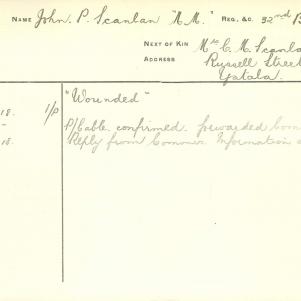 NAME John. P. Scanlan "M.M." REG. &C. 32nd B
NEXT OF KIN Mrs C. M. Scanla
ADDRESS Russell Street
Yatala.
"Wounded"
18. 1/P P/Cable confirmed. forwarded Com
18. Reply from Comowr. Information